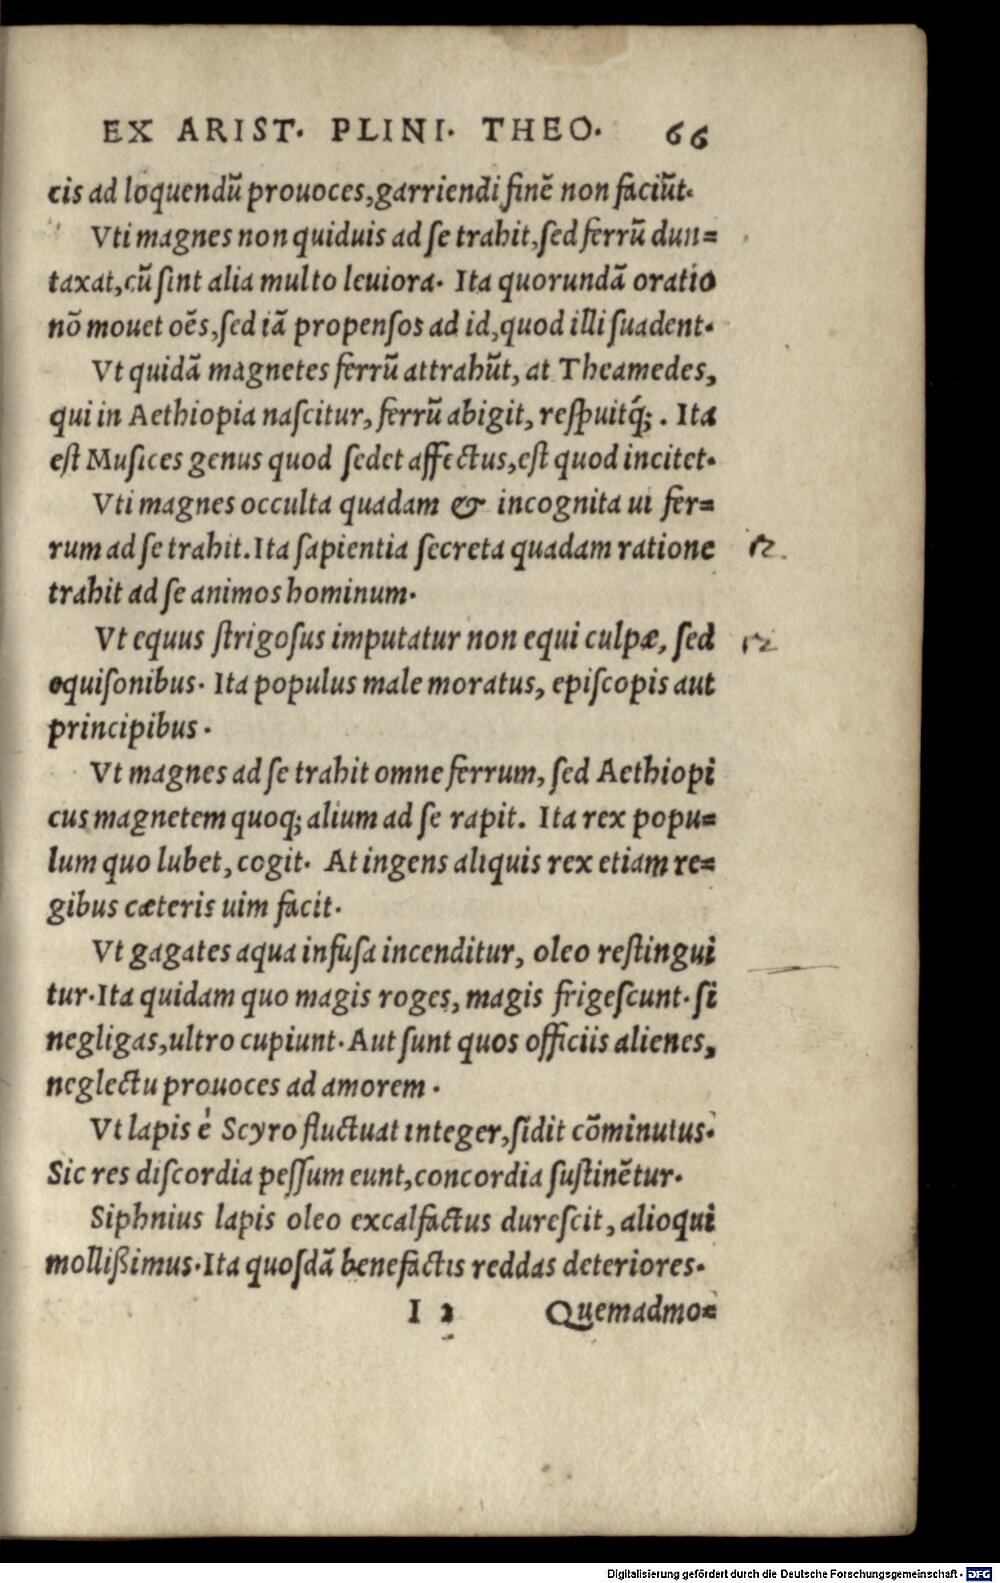 EX ARIST. PLINI. THEO. 66
cis ad loquendũ prouoces, garriendi finẽ non faciũt.
Vti magnes non quiduis ad se trahit, sed ferrũ dun=
taxat, cũ sint alia multo leuiora. Ita quorundã oratio
nõ mouet oẽs, sed iã propensos ad id, quod illi suadent.
Vt quidã magnetes ferrũ attrahũt, at Theamedes,
qui in Aethiopia nascitur, ferrũ abigit, respuitq́;. Ita
est Musices genus quod sedet affectus, est quod incitet.
Vti magnes occulta quadam & incognita ui fer=
rum ad se trahit. Ita sapientia secreta quadam ratione
trahit ad se animos hominum.
Vt equus strigosus imputatur non equi culpæ, sed
equisonibus. Ita populus male moratus, episcopis aut
principibus.
Vt magnes ad se trahit omne ferrum, sed Aethiopi
cus magnetem quoq; alium ad se rapit. Ita rex popu=
lum quo lubet, cogit. At ingens aliquis rex etiam re=
gibus cæteris uim facit.
Vt gagates aqua infusa incenditur, oleo restingui
tur. Ita quidam quo magis roges, magis frigescunt. si
negligas, ultro cupiunt. Aut sunt quos officiis alienes,
neglectu prouoces ad amorem.
Vt lapis é Scyro fluctuat integer, sidit cõminutus.
Sic res discordia pessum eunt, concordia sustinẽtur.
Siphnius lapis oleo excalfactus durescit, alioqui
mollißimus. Ita quosdã benefactis reddas deteriores.
I 2 Quemadmo=
Digitalisierung gefördert durch die Deutsche Forschungsgemeinschaft - DFG